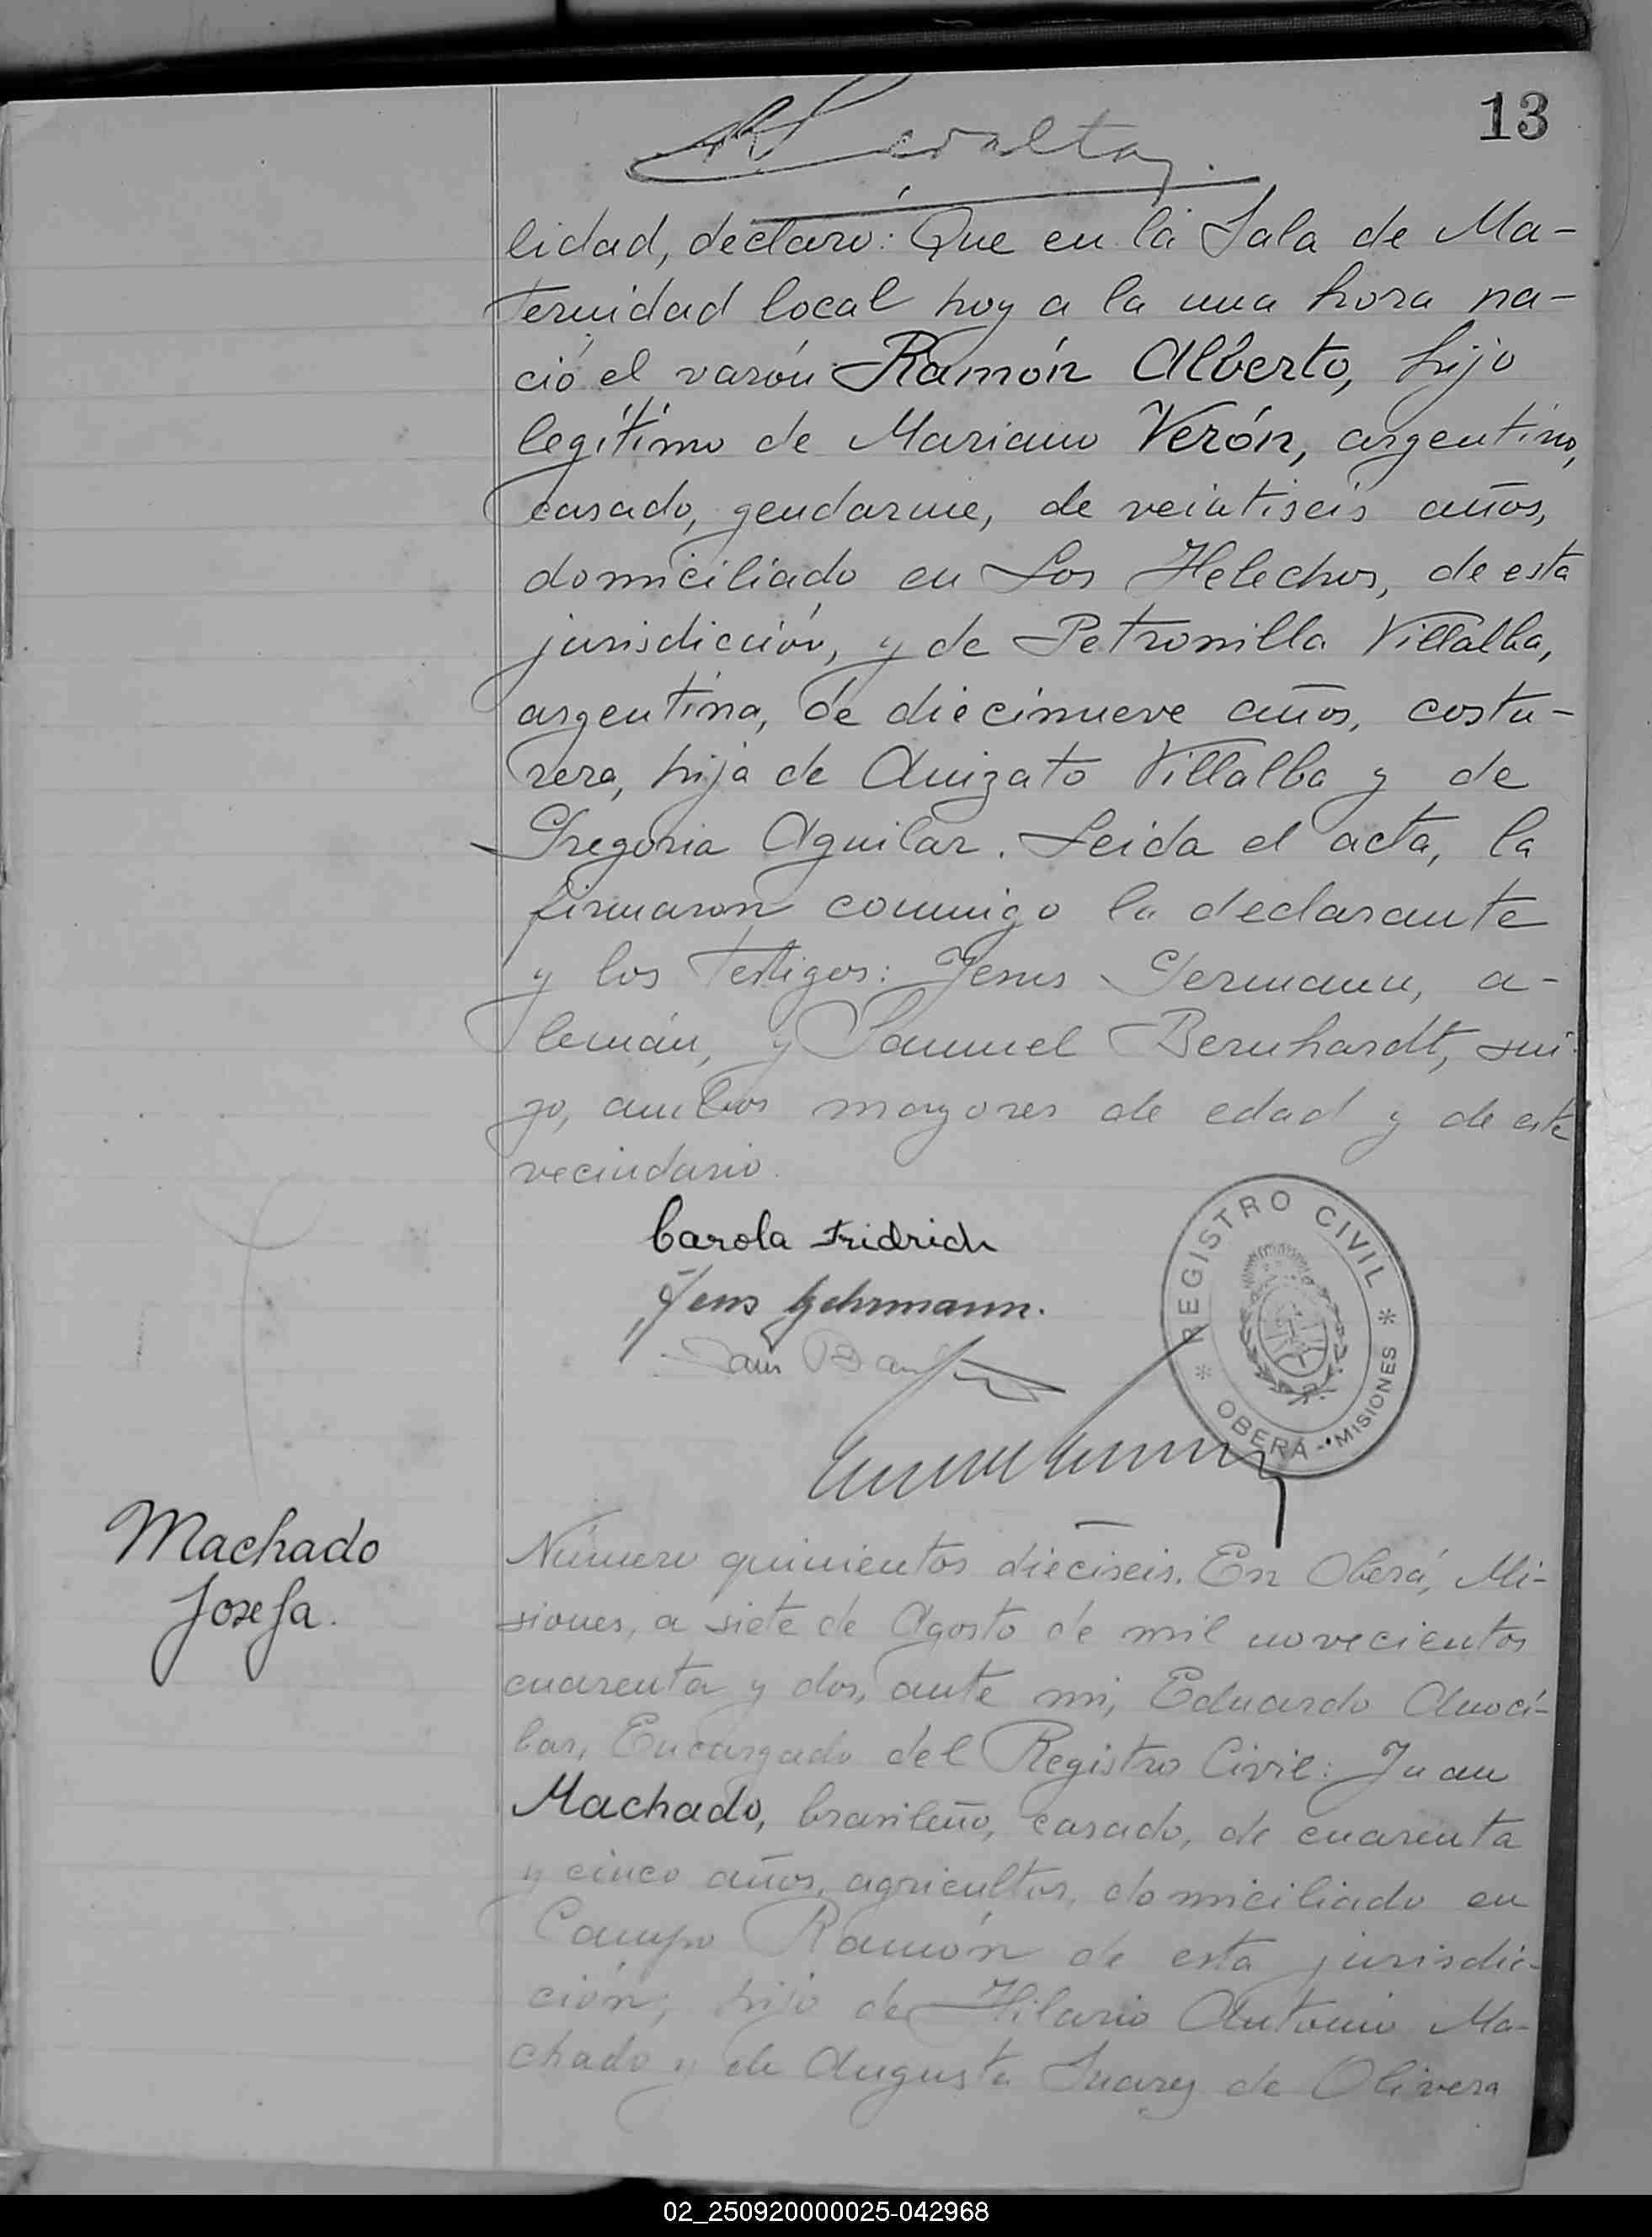 13
Peralta
lidad, declaro: Que en la Sala de Ma-
ternidad local hoy a la una hora na-
ció el varón Ramón Alberto, hijo
legítimo de Mariano Verón, argentino,
casado, gendarme, de veintiseis años,
domiciliado en Los Helechos, de esta
jurisdicción, y de Petronilla Villalba,
argentina, de diecinueve años, costu-
rera, hija de Anizato Villalba y de
Gregoria Aguilar. Leida el acta, la
firmaron conmigo la declarante
y los testigos: Jens Germann, a-
lemán, y Samuel Bernhardt, sui-
zo, ambos mayores de edad y de este
vecindario.
Carola Fridrich
Jens Gehrmann.
REGISTRO CIVIL
* OBERÁ - MISIONES *
Machado
Josefa.
Número quinientos dieciseis. En Oberá, Mi-
siones, a siete de Agosto de mil novecientos
cuarenta y dos, ante mi, Eduardo Anocí-
bar, Encargado del Registro Civil: Juan
Machado, brasileño, casado, de cuarenta
y cinco años, agricultor, domiciliado en
Campo Ramón de esta jurisdic-
ción, hijo de Hilario Antonio Ma-
chado y de Augusta Suarez de Olivera
02_250920000025-042968